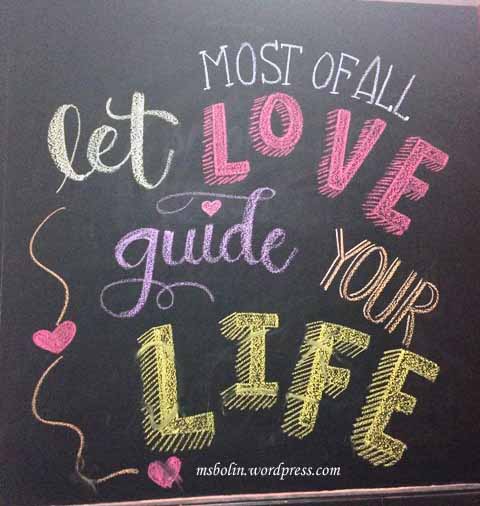 MOST OF ALL
let LOVE
guide YOUR
LIFE
msbolin.wordpress.com